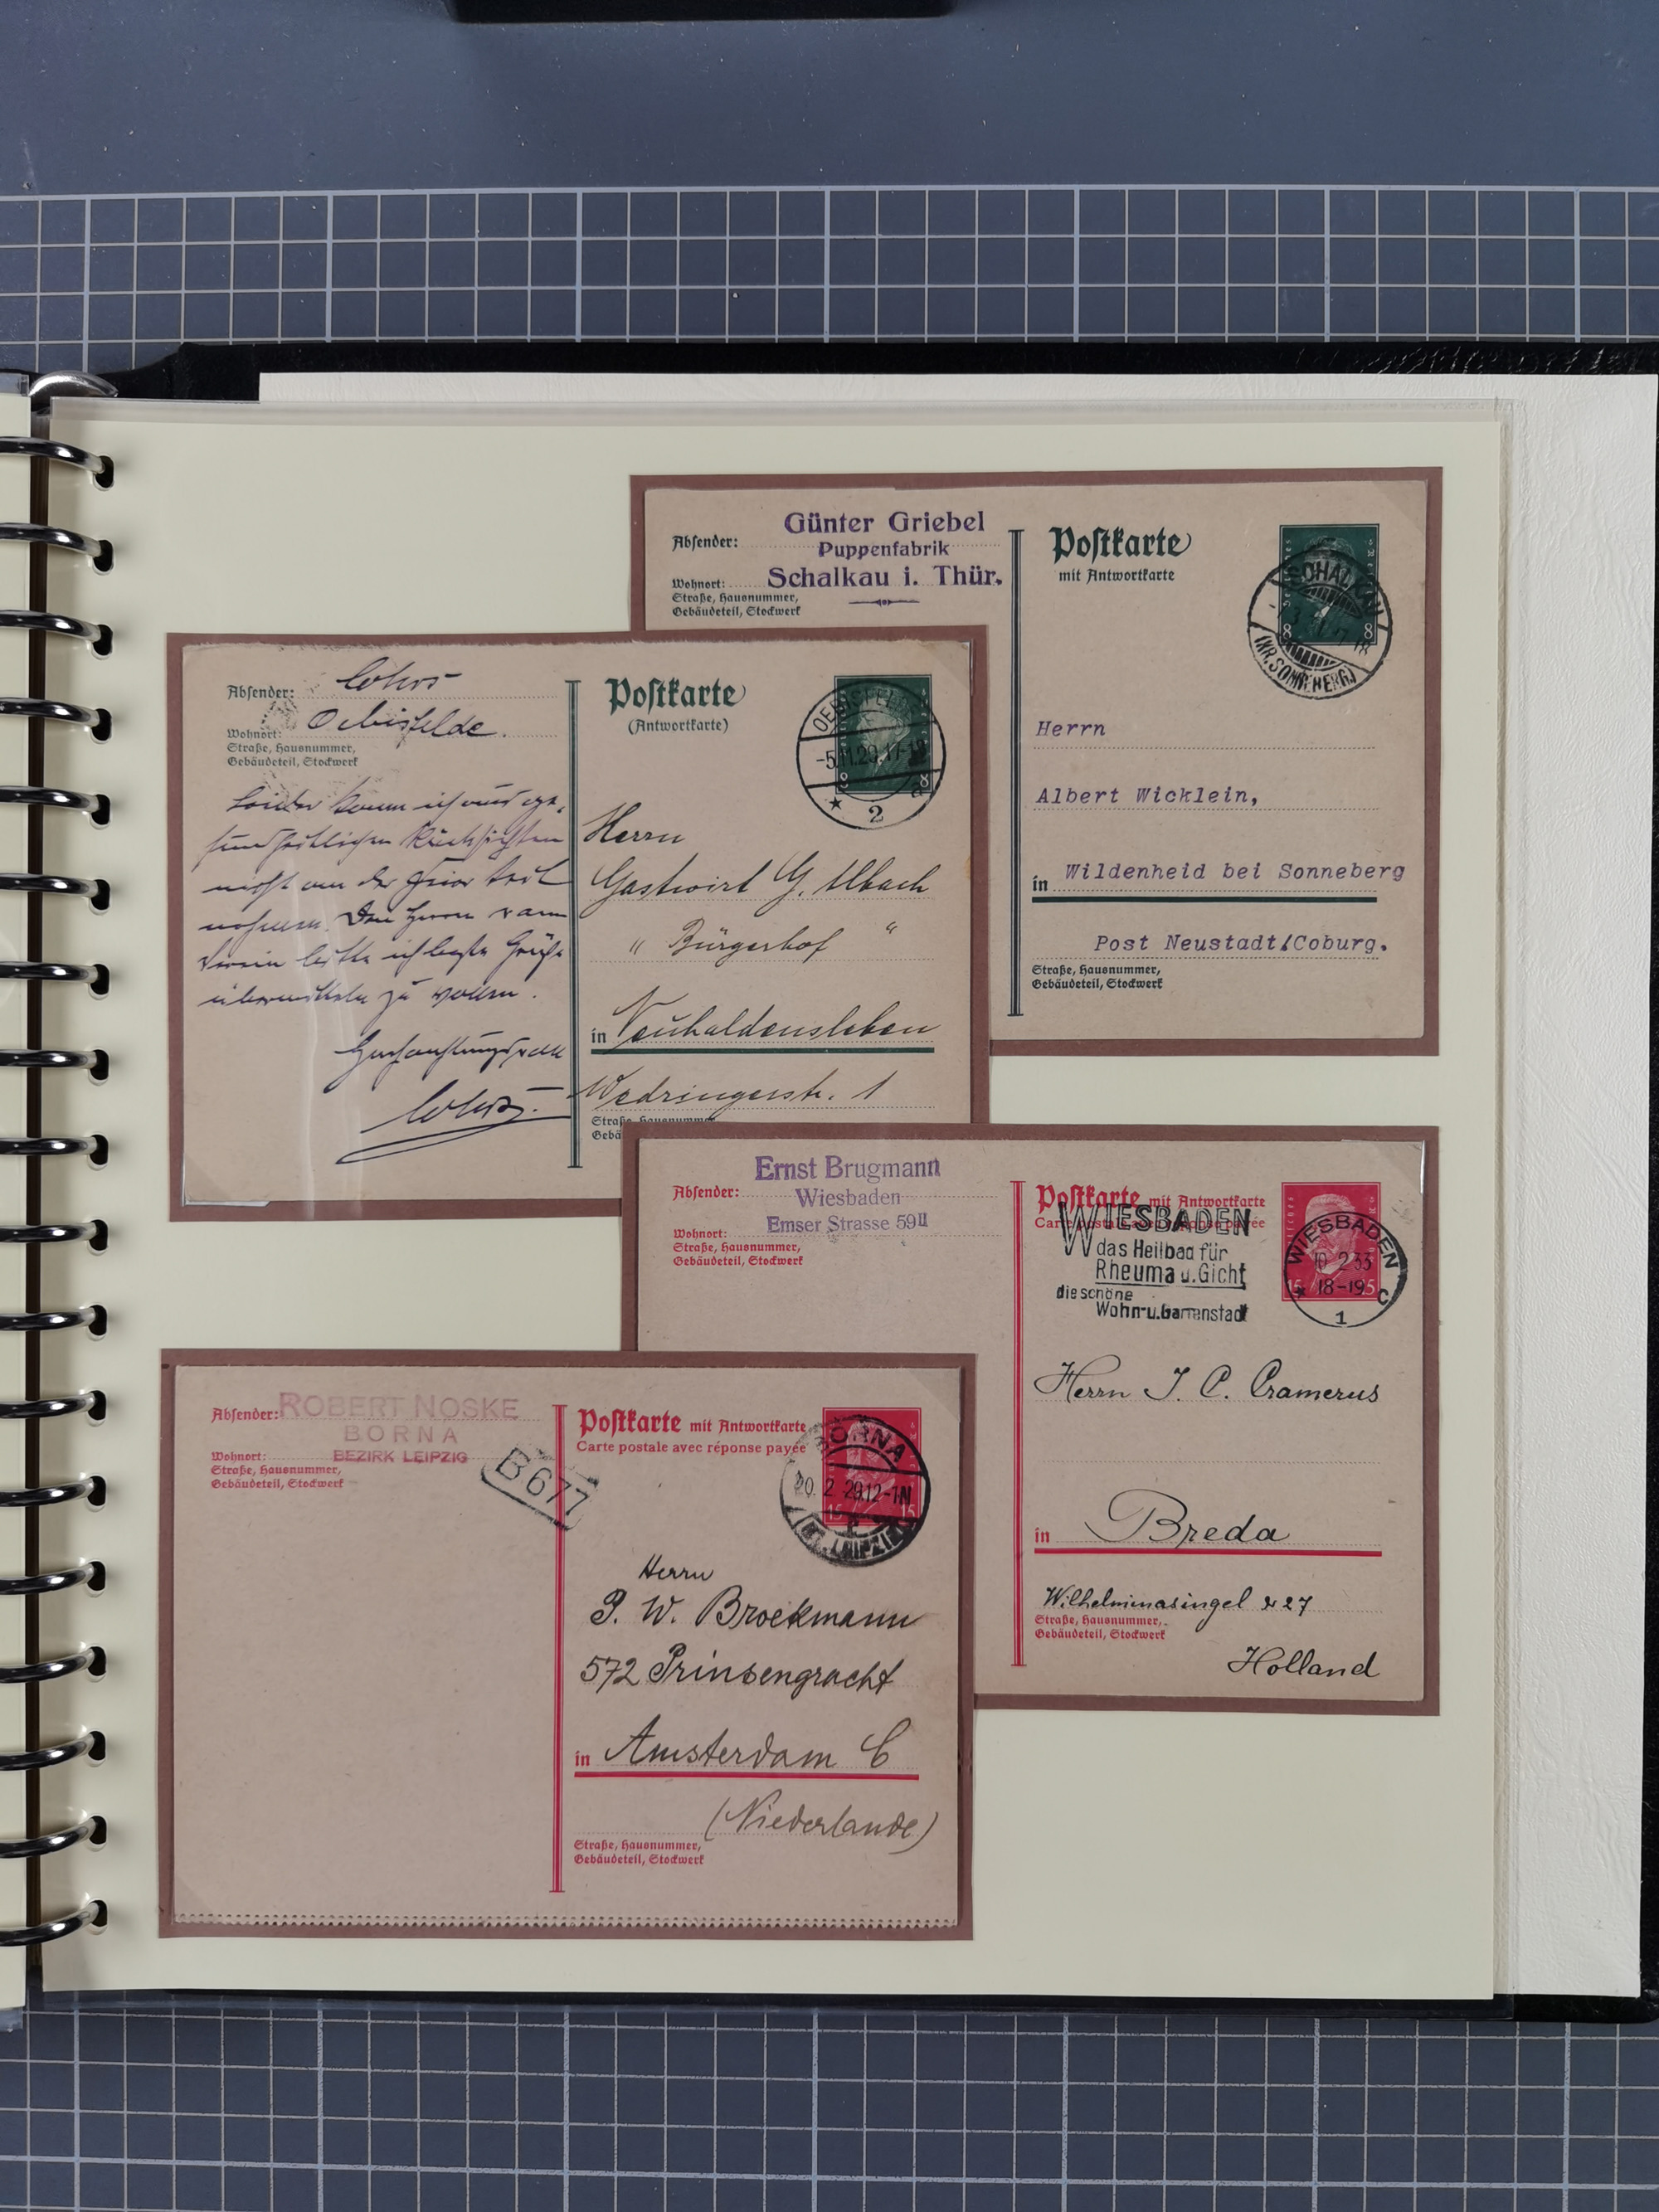 Günter Griebel
Absender:
Puppenfabrik
Wohnort: Schalkau i. Thür.
Straße, Hausnummer,
Gebäudeteil, Stockwerk
Postkarte
mit Antwortkarte
SCHALKAU
(KR. SONNEBERG)
8 8
Herrn
Albert Wicklein,
in Wildenheid bei Sonneberg
Post Neustadt/Coburg.
Straße, Hausnummer,
Gebäudeteil, Stockwerk
Absender: Cohrs
Wohnort: Oebisfelde.
Straße, Hausnummer,
Gebäudeteil, Stockwerk
Leider kann ich aus
nicht an der Feier teil
nehmen. Den Herren vom
Verein bitte ich beste Grüße
übermitteln zu wollen.
Hochachtungsvoll
Cohrs.
Postkarte
(Antwortkarte)
OEBISFELDE
-5.11.29.11-12
* 2 a
8 8
Herrn
Gastwirt G. Ulbach
"Bürgerhof"
in Neuhaldensleben
Wedringerstr. 1
Straße, Hausnummer,
Gebä
Ernst Brugmann
Absender: Wiesbaden
Emser Strasse 59 II
Wohnort:
Straße, Hausnummer,
Gebäudeteil, Stockwerk
Postkarte mit Antwortkarte
Carte postale avec réponse payée
WIESBADEN
das Heilbad für
Rheuma u. Gicht
die schöne
Wohn- u. Gartenstadt
WIESBADEN
10 2 33
* 18-19 c
1
15 15
Herrn J. C. Cramerus
in Breda
Wilhelminasingel 27
Straße, Hausnummer,
Gebäudeteil, Stockwerk
Holland
Absender: ROBERT NOSKE
BORNA
Wohnort: BEZIRK LEIPZIG
Straße, Hausnummer,
Gebäudeteil, Stockwerk
B677
Postkarte mit Antwortkarte
Carte postale avec réponse payée
BORNA
20. 2. 29.12-1N
(BZ. LEIPZIG)
15 15
Herrn
P. W. Broekmann
572 Prinsengracht
in Amsterdam C
(Niederlande)
Straße, Hausnummer,
Gebäudeteil, Stockwerk